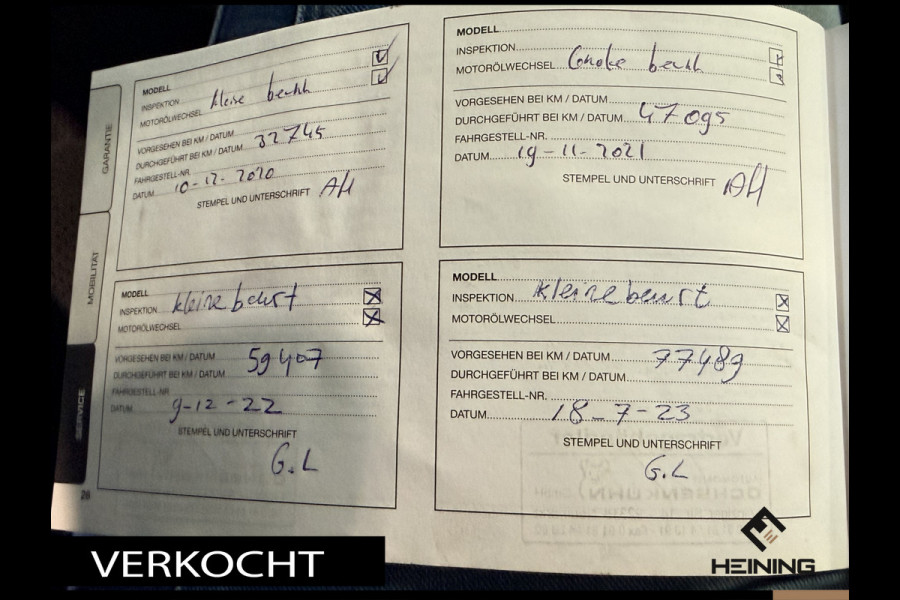 GARANTIE
MOBILITÄT
SERVICE
MODELL
INSPEKTION
MOTORÖLWECHSEL kleine beurt
VORGESEHEN BEI KM / DATUM
DURCHGEFÜHRT BEI KM / DATUM 32745
FAHRGESTELL-NR.
DATUM 10-12-2020
STEMPEL UND UNTERSCHRIFT AH
MODELL
INSPEKTION
MOTORÖLWECHSEL beurt
VORGESEHEN BEI KM / DATUM
DURCHGEFÜHRT BEI KM / DATUM 47095
FAHRGESTELL-NR.
DATUM 19-11-2021
STEMPEL UND UNTERSCHRIFT AH
MODELL
INSPEKTION kleine beurt
MOTORÖLWECHSEL
VORGESEHEN BEI KM / DATUM 59407
DURCHGEFÜHRT BEI KM / DATUM
FAHRGESTELL-NR.
DATUM 9-12-22
STEMPEL UND UNTERSCHRIFT
G.L
MODELL
INSPEKTION kleine beurt
MOTORÖLWECHSEL
VORGESEHEN BEI KM / DATUM 77483
DURCHGEFÜHRT BEI KM / DATUM
FAHRGESTELL-NR.
DATUM 18-7-23
STEMPEL UND UNTERSCHRIFT
G.L
28
VERKOCHT
HEINING